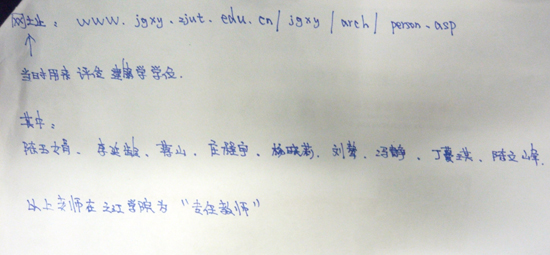 网址: www.jgxy.zjut.edu.cn/jgxy/arch/person.asp
↑
当时用来评估建筑学学位.
其中:
陈玉文娟、李延龄、蒋山、庄程宇、杨晓莉、刘馨、冯静、丁夏君、陈立峰.
以上老师在之江学院为“专任教师”